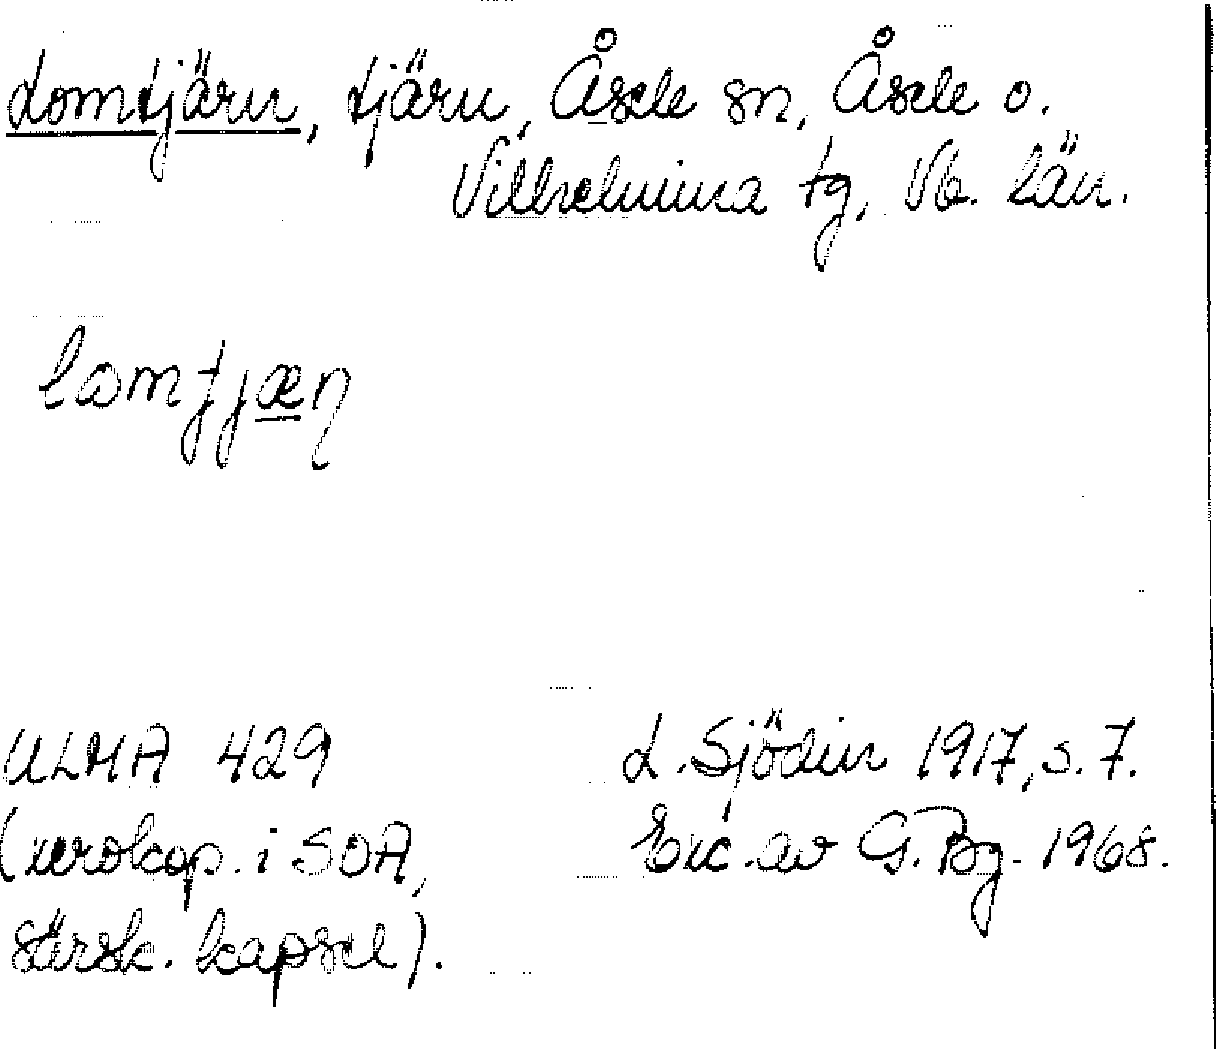 Lomtjärn, tjärn, Åsele sn, Åsele o.
Vilhelmina tg, Vb. län.
lomtjæn
ULMA 429
(xerokop. i SOA,
särsk. kapsel).
L. Sjödin 1917, s. 7.
Exc. av G. Bg. 1968.